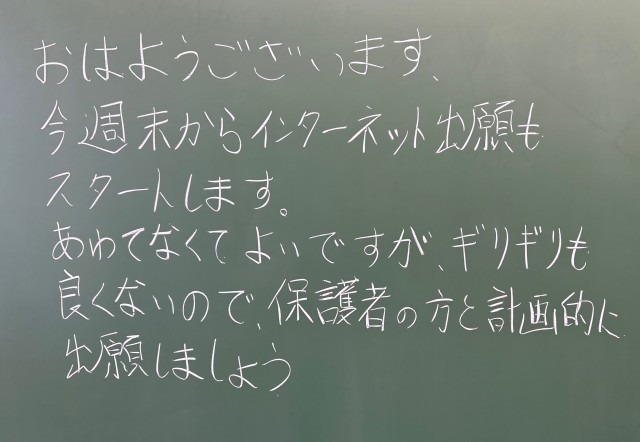 おはようございます、
今週末からインターネット出願も
スタートします。
あわてなくてよいですが、ギリギリも
良くないので、保護者の方と計画的に
出願しましょう